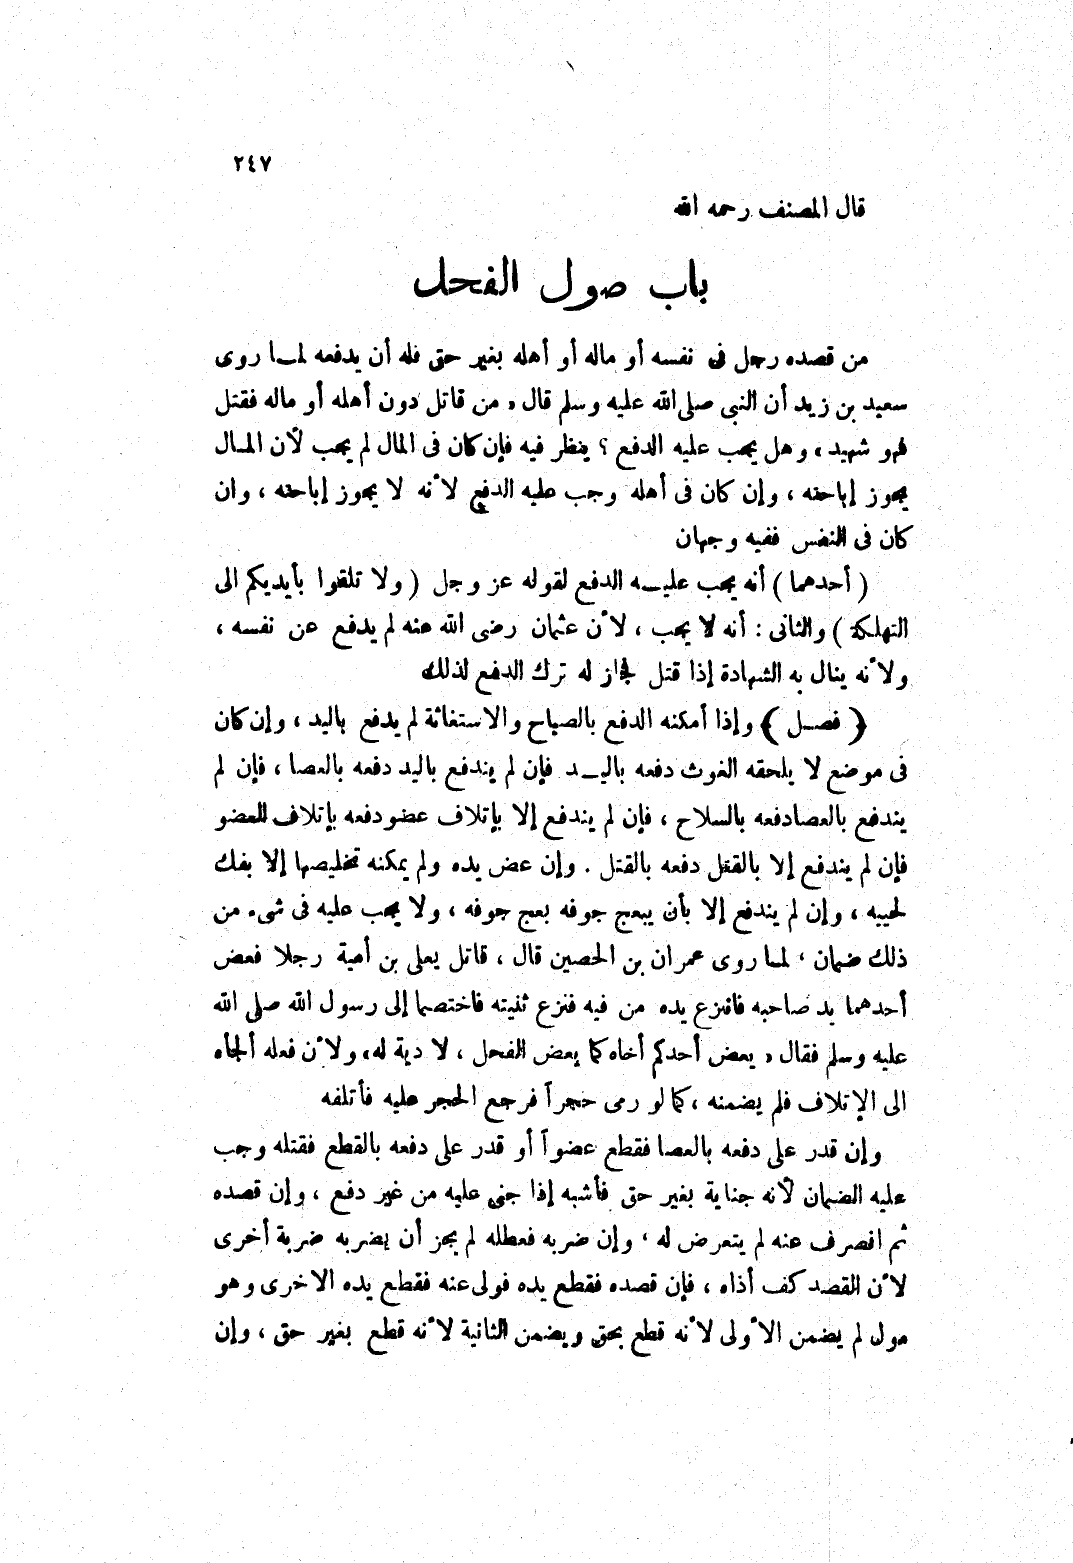 ٢٤٧
قال المصنف رحمه الله
باب صول الفحل
من قصده رجل فى نفسه أو ماله أو أهله بغير حق فله أن يدفعه لمـا روى
سعيد بن زيد أن النبى صلى الله عليه وسلم قال « من قاتل دون أهله أو ماله فقتل
فهو شهيد ، وهل يجب عليه الدفع ؟ ينظر فيه فإن كان فى المال لم يجب لأن المـال
يجوز إباحته ، وإن كان فى أهله وجب عليه الدفع لأنه لا يجوز إباحته ، وان
كان فى النفس ففيه وجهان
( أحدهما ) أنه يجب عليـه الدفع لقوله عز وجل ( ولا تلقوا بأيديكم الى
التهلكة ) والثانى : أنه لا يجب ، لأن عثمان رضى الله عنه لم يدفع عن نفسه ،
ولأنه ينال به الشهادة إذا قتل فجاز له ترك الدفع لذلك
﴿ فصـل ﴾ وإذا أمكنه الدفع بالصياح والاستغاثة لم يدفع باليد ، وإن كان
فى موضع لا يلحقه الغوث دفعه باليـد فإن لم يندفع باليد دفعه بالعصا ، فإن لم
يندفع بالعصا دفعه بالسلاح ، فإن لم يندفع إلا بإتلاف عضو دفعه بإتلاف العضو
فإن لم يندفع إلا بالقتل دفعه بالقتل . وإن عض يده ولم يمكنه تخليصها إلا بفك
لحييه ، وإن لم يندفع إلا بأن يبعج جوفه بعج جوفه ، ولا يجب عليه فى شىء من
ذلك ضمان ، لمـا روى عمران بن الحصين قال ، قاتل يعلى بن أمية رجلا فعض
أحدهما يد صاحبه فانتزع يده من فيه فنزع ثنيته فاختصما إلى رسول الله صلى الله
عليه وسلم فقال « يعض أحدكم أخاه كما يعض الفحل ، لا دية له، ولأن فعله ألجأه
الى الإتلاف فلم يضمنه ، كما لو رمى حجراً فرجع الحجر عليه فأتلفه
وإن قدر على دفعه بالعصا فقطع عضواً أو قدر على دفعه بالقطع فقتله وجب
عليه الضمان لأنه جناية بغير حق فأشبه إذا جنى عليه من غير دفع ، وإن قصده
ثم انصرف عنه لم يتعرض له ، وإن ضربه فعطله لم يجز أن يضربه ضربة أخرى
لأن القصد كف أذاه ، فإن قصده فقطع يده فولى عنه فقطع يده الاخرى وهو
مول لم يضمن الأولى لأنه قطع بحق ويضمن الثانية لأنه قطع بغير حق ، وإن